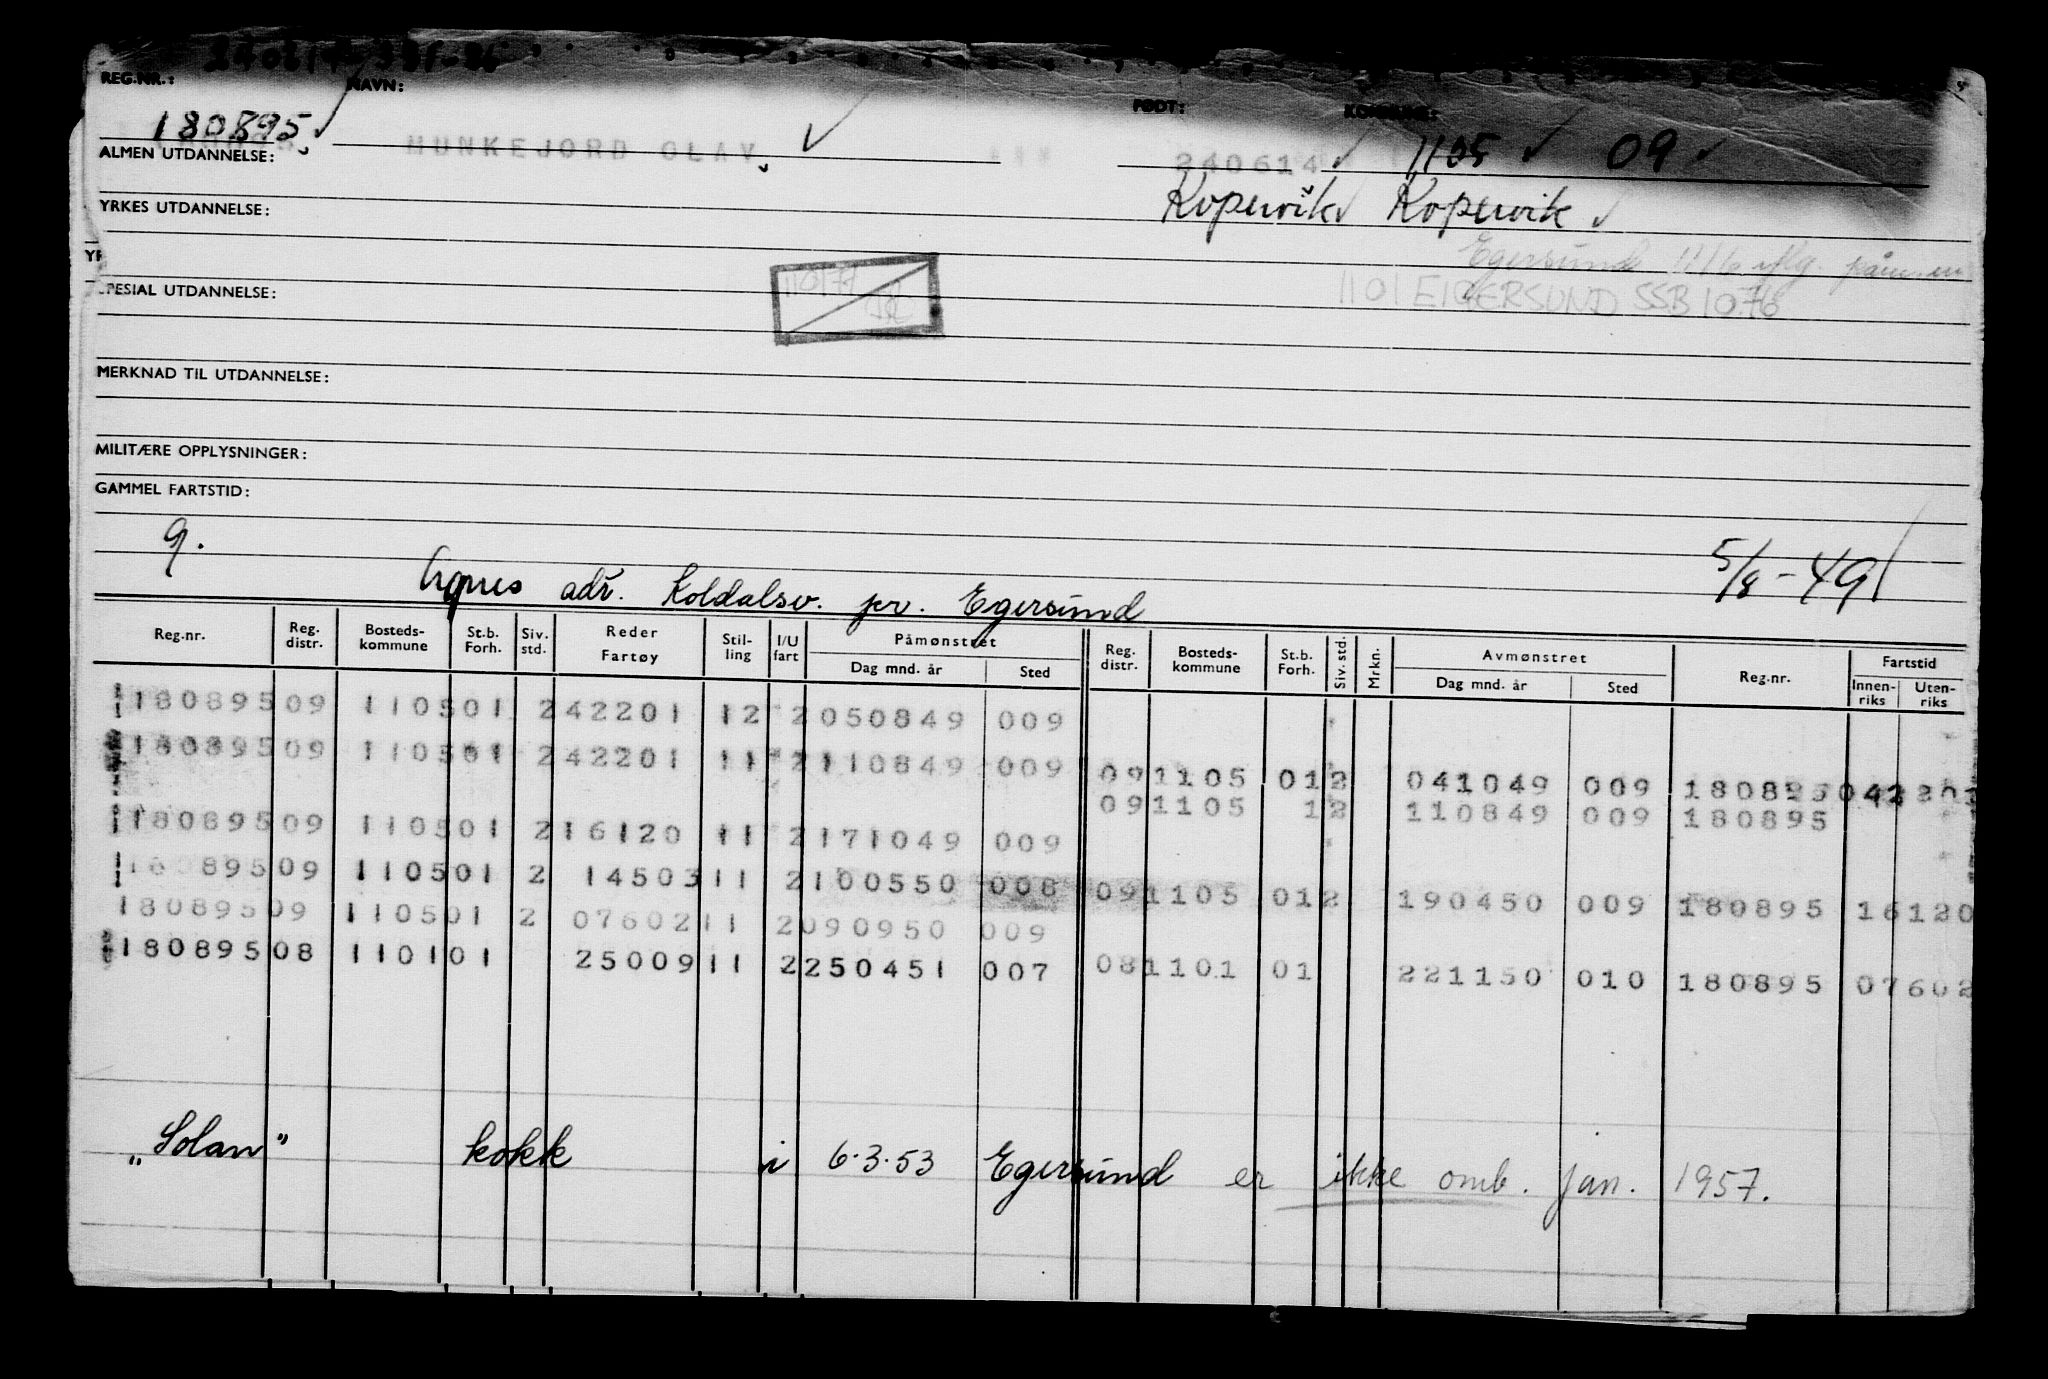 REG.NR.: NAVN: FØDT: KOMMUNE:
180895 MUNKEJORD OLAV 240614 1105 09
ALMEN UTDANNELSE:
Kopervik Kopervik
YRKES UTDANNELSE:
Egersund
SPESIAL UTDANNELSE:
1101 EIGERSUND SSB 10.76
MERKNAD TIL UTDANNELSE:
MILITÆRE OPPLYSNINGER:
GAMMEL FARTSTID:
g. 5/8-49
adr. Koldalsv. pr. Egersund
Reg.nr. Reg. distr. Bosteds-kommune St.b. Forh. Siv. std. Reder Fartøy Stil-ling I/U fart Påmønstret Dag mnd. år Sted Reg. distr. Bosteds-kommune St.b. Forh. Siv. std. Mrkn. Avmønstret Dag mnd. år Sted Reg.nr. Fartstid Innen-riks Uten-riks
180895 09 1105 01 2 42201 12 2 050849 009
180895 09 1105 01 2 42201 11 2 110849 009
09 1105 01 2 041049 009 180895
09 1105 1 2 110849 009 180895
180895 09 1105 01 2 16120 11 2 171049 009
180895 09 1105 01 2 14503 11 2 100550 008
09 1105 01 2 190450 009 180895 16120
180895 09 1105 01 2 07602 11 2 090950 009
180895 08 1101 01 25009 11 2 250451 007
08 1101 01 221150 010 180895 07602
„Solan" kokk i 6.3.53 Egersund er ikke omb. jan. 1957.